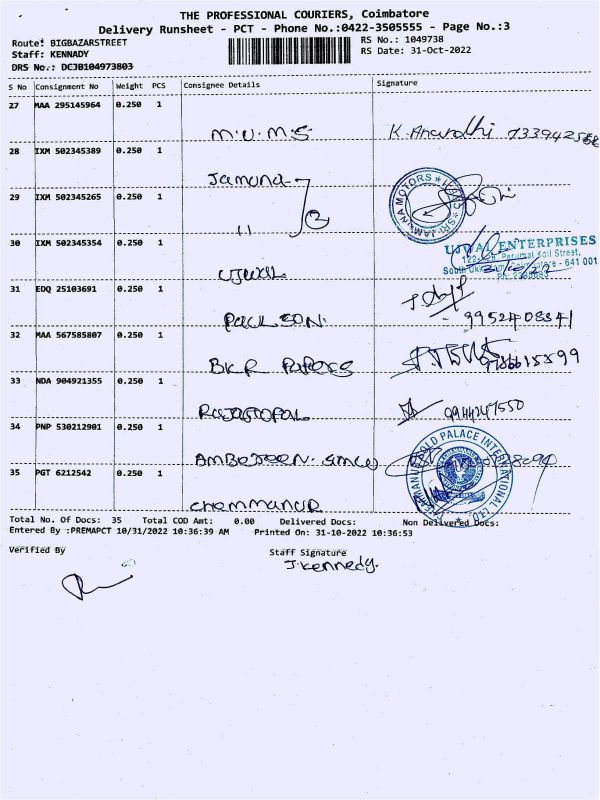 THE PROFESSIONAL COURIERS, Coimbatore
Delivery Runsheet - PCT - Phone No.:0422-3505555 - Page No.:3
Route: BIGBAZARSTREET
RS No.: 1049738
Staff: KENNADY
RS Date: 31-Oct-2022
DRS No.: DCJB104973803
S No Consignment No Weight PCS Consignee Details Signature
27 MAA 295145964 0.250 1
M.U.M.S K.Anandhi
28 IXM 502345389 0.250 1
Jamuna
29 IXM 502345265 0.250 1
"
SRI JAMUNA MOTORS
30 IXM 502345354 0.250 1
UJWAL
UJWAL ENTERPRISES
Perumal Koil Street,
641 001
31 EDQ 25103691 0.250 1
PAULSON. 9952408341
32 MAA 567585807 0.250 1
BKR PAPERS
33 NDA 904921355 0.250 1
RAJAGOPAL 9944247550
34 PNP 530212901 0.250 1
35 PGT 6212542 0.250 1
CHEMMANUR
GOLD PALACE INTERNATIONAL LTD.
Total No. Of Docs: 35 Total COD Amt: 0.00 Delivered Docs: Non Delivered Docs:
Entered By :PREMAPCT 10/31/2022 10:36:39 AM Printed On: 31-10-2022 10:36:53
Verified By Staff Signature
J.Kennedy.